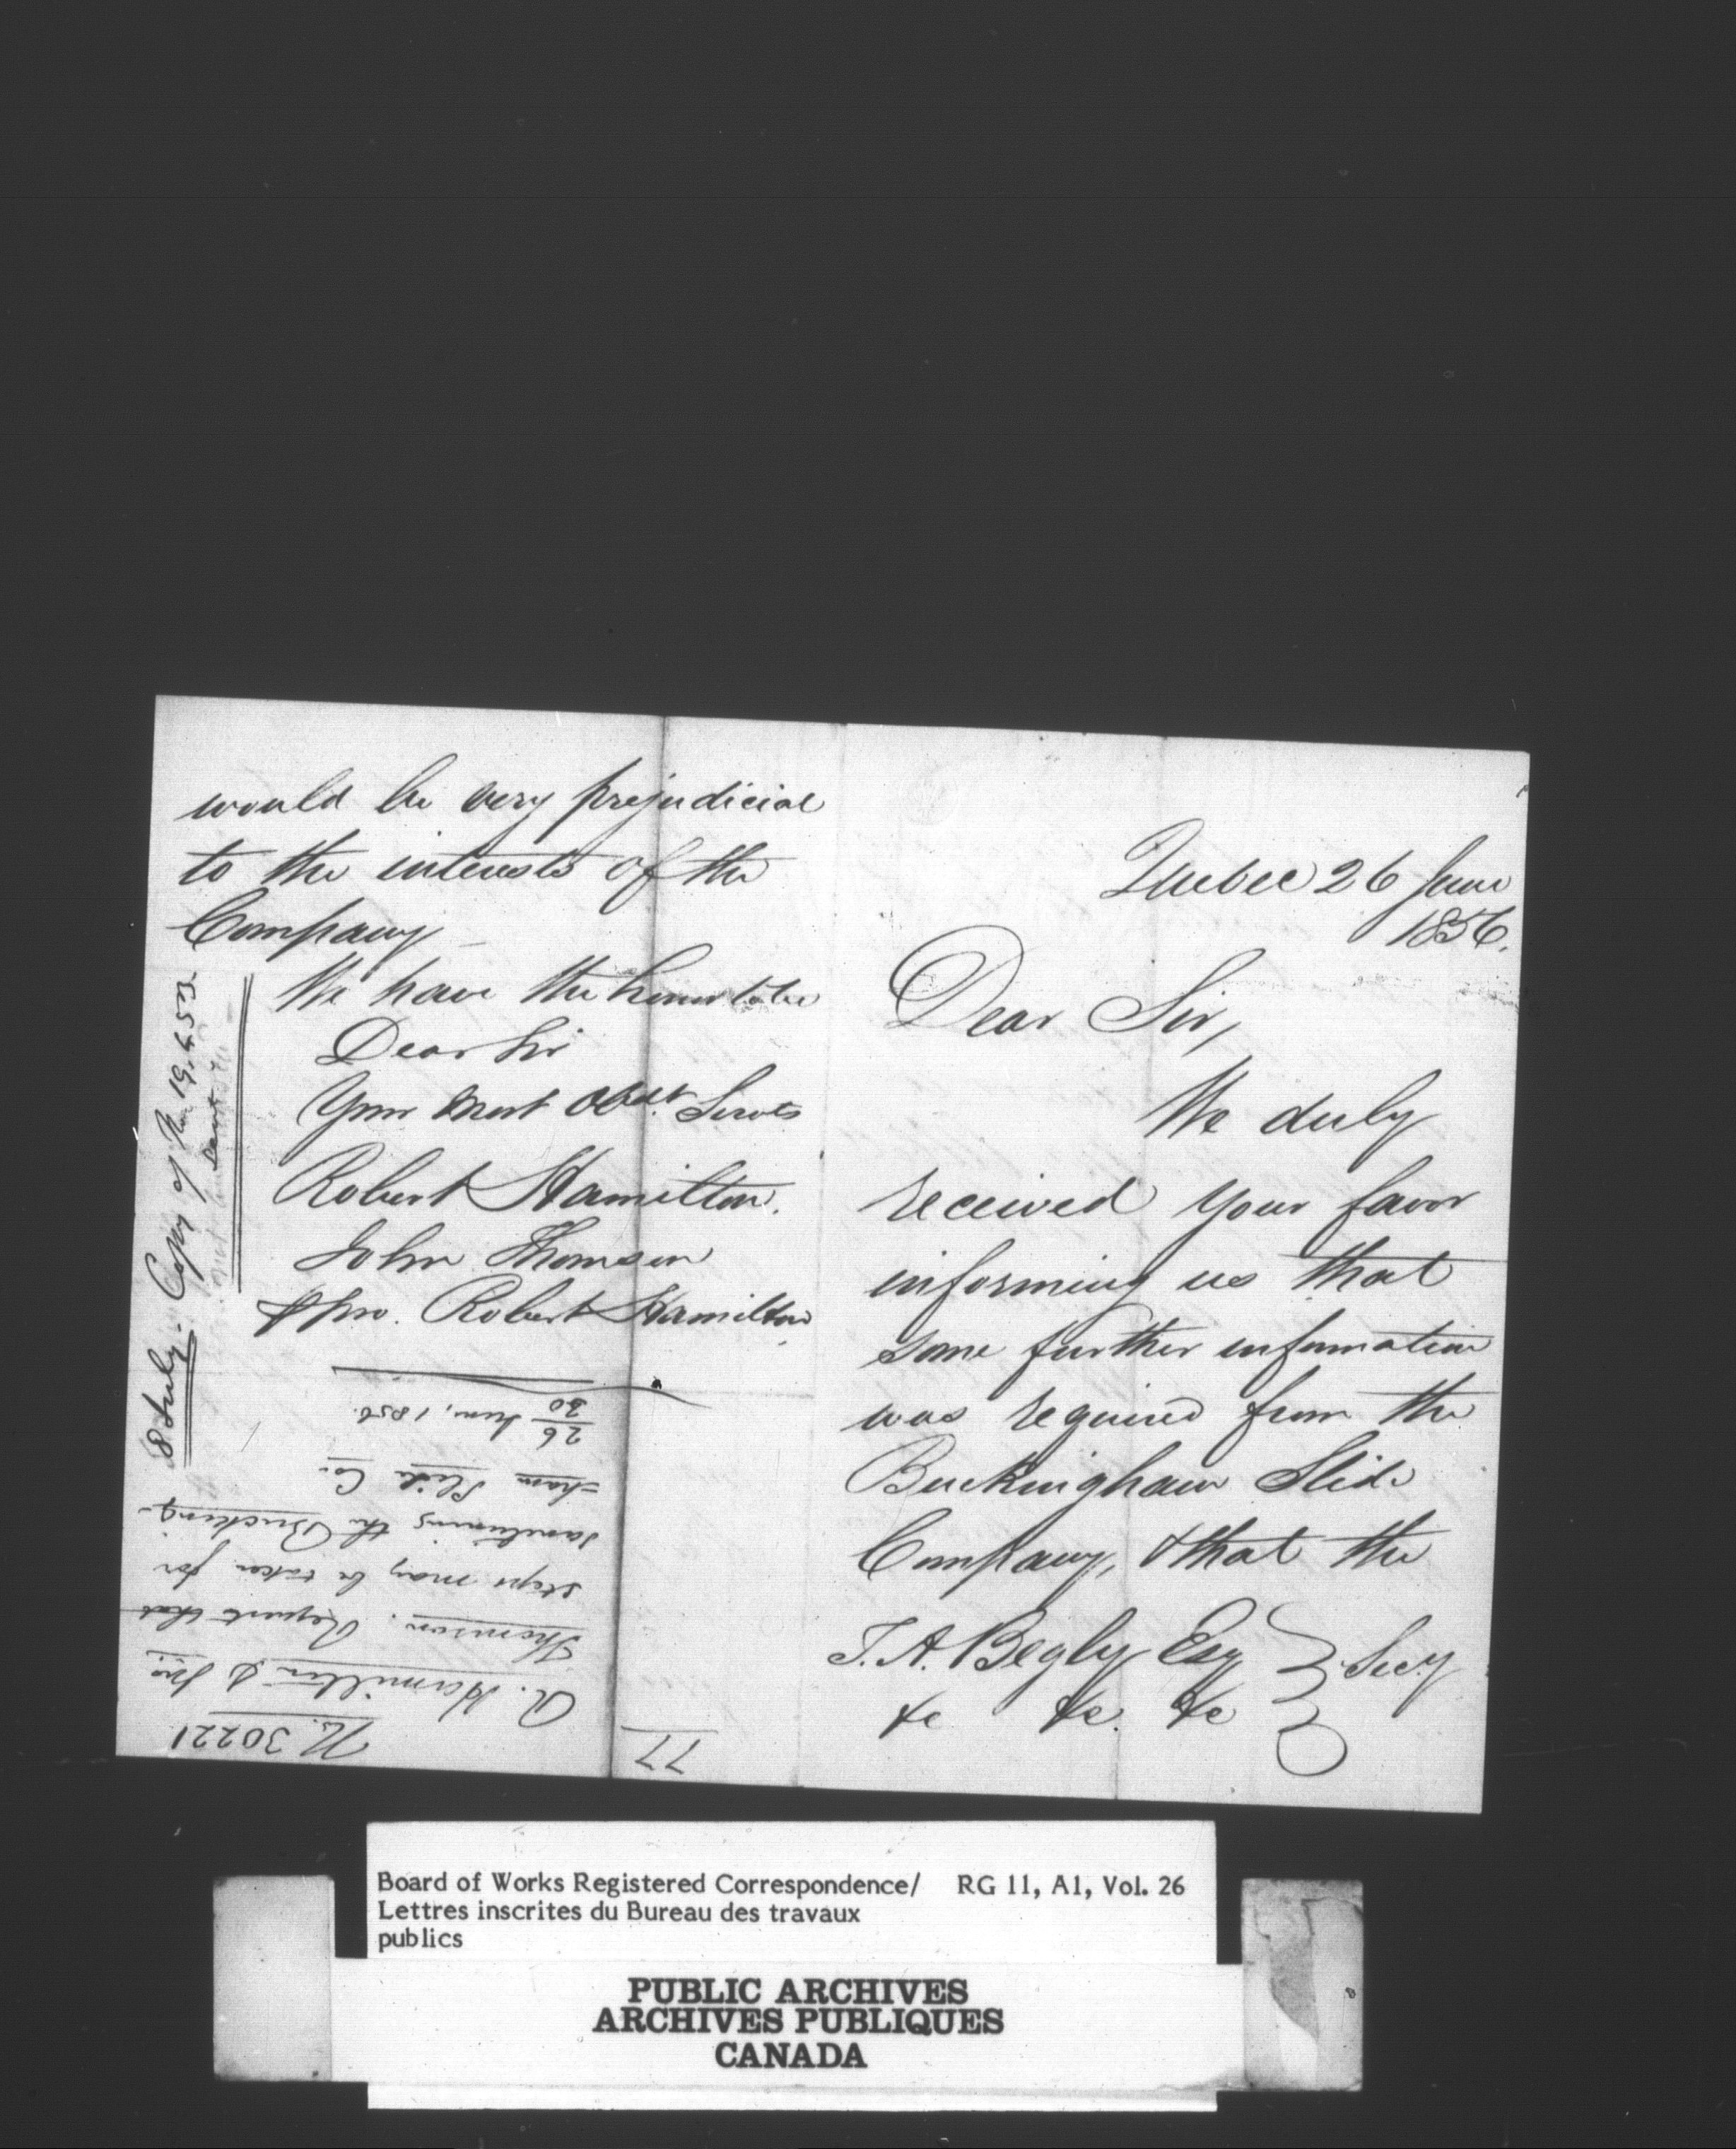 Quebec 26 June
1856.
Dear Sir,
We duly
received your favor
informing us that
some further information
was required from the
Buckingham Slide
Company, & that the
T. A. Begly Esq Secy
&c &c. &c
would be very prejudicial
to the interests of the
Company
We have the honor to be
Dear Sir
Your most Obedt. Servts
Robert Hamilton.
John Thomson
p pro. Robert Hamilton
8 July. Copy of No 19.453
sent
77
No. 30221
R. Hamilton & Jno.
Thomson. Request that
steps may be taken for
sanctioning the Bucking-
-ham Slide Co.
26/30 June, 1856.
Board of Works Registered Correspondence/ RG 11, A1, Vol. 26
Lettres inscrites du Bureau des travaux
publics
PUBLIC ARCHIVES
ARCHIVES PUBLIQUES
CANADA